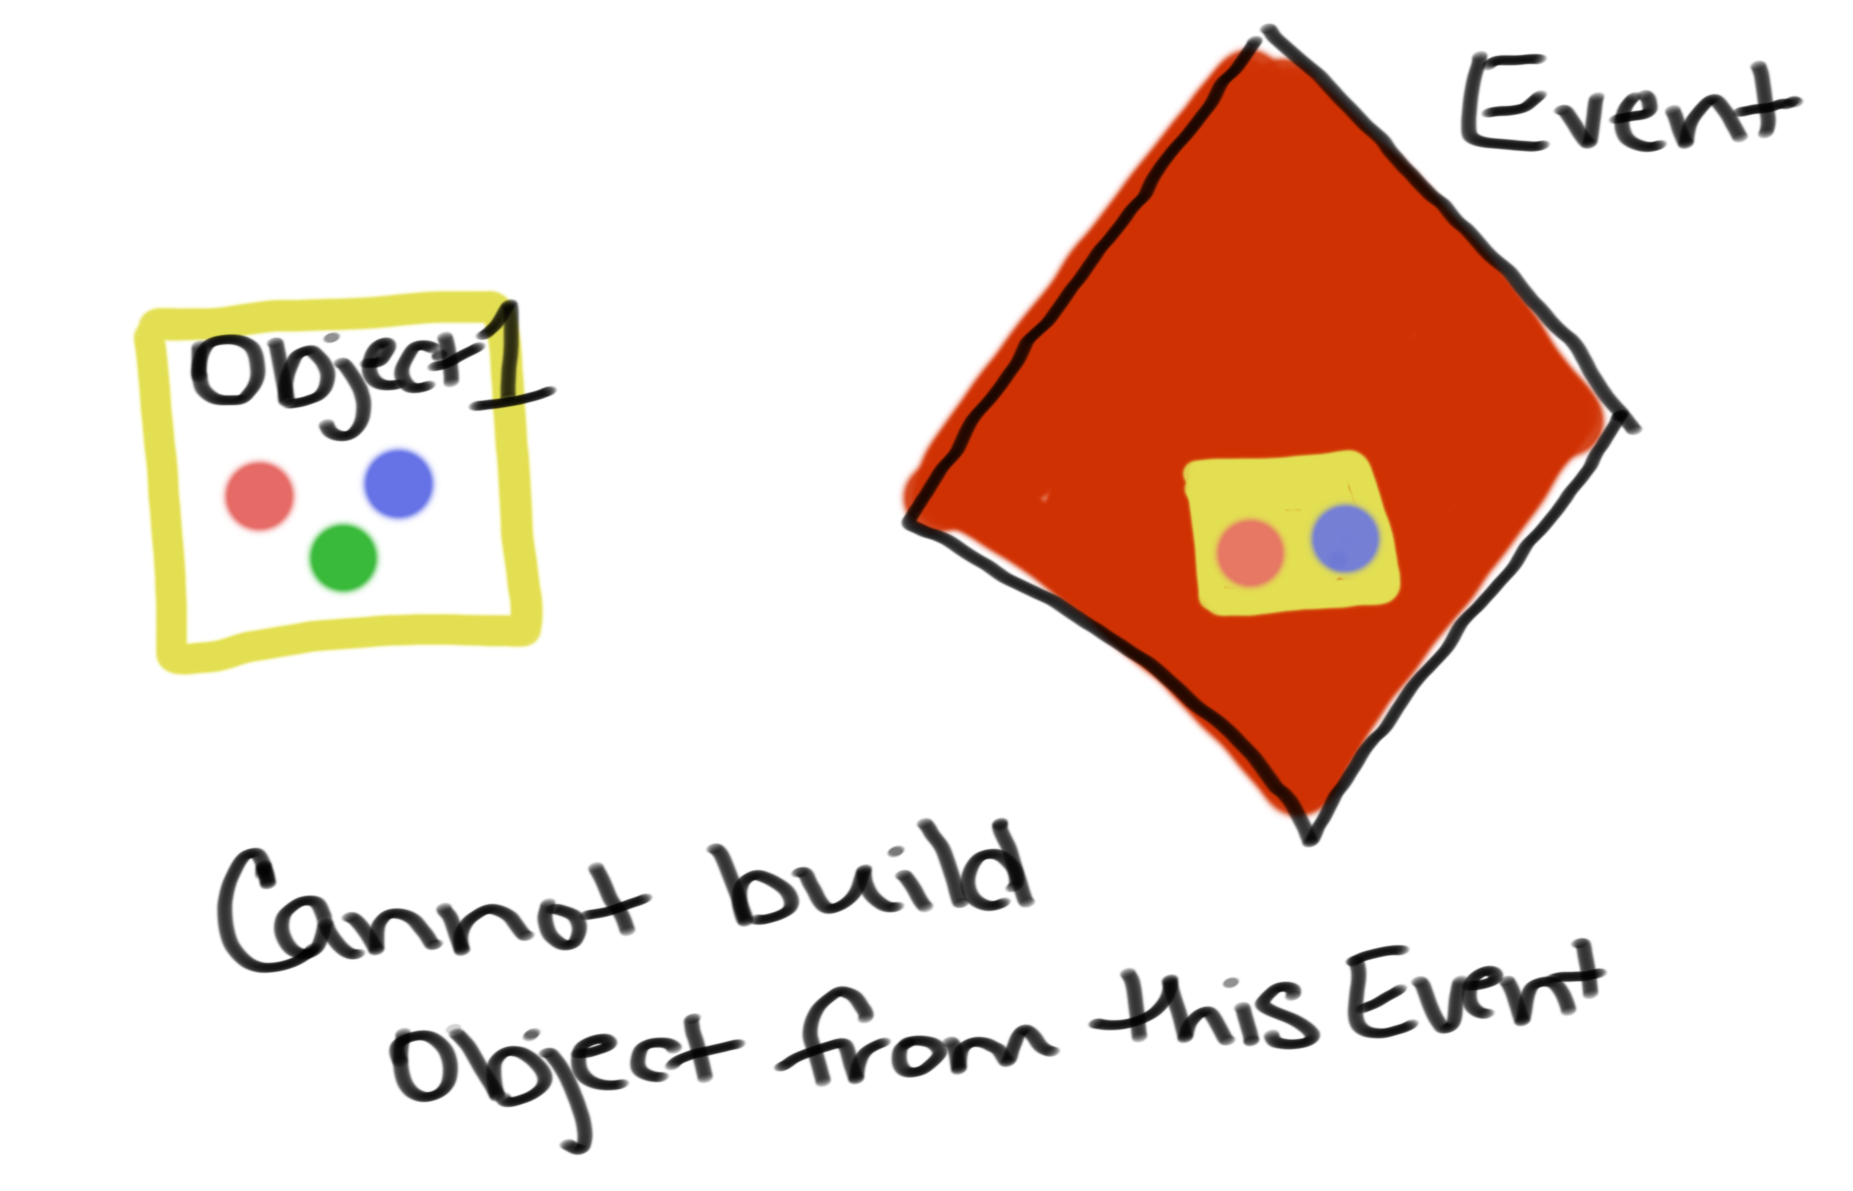 Event
Object 1
Cannot build
Object from this Event